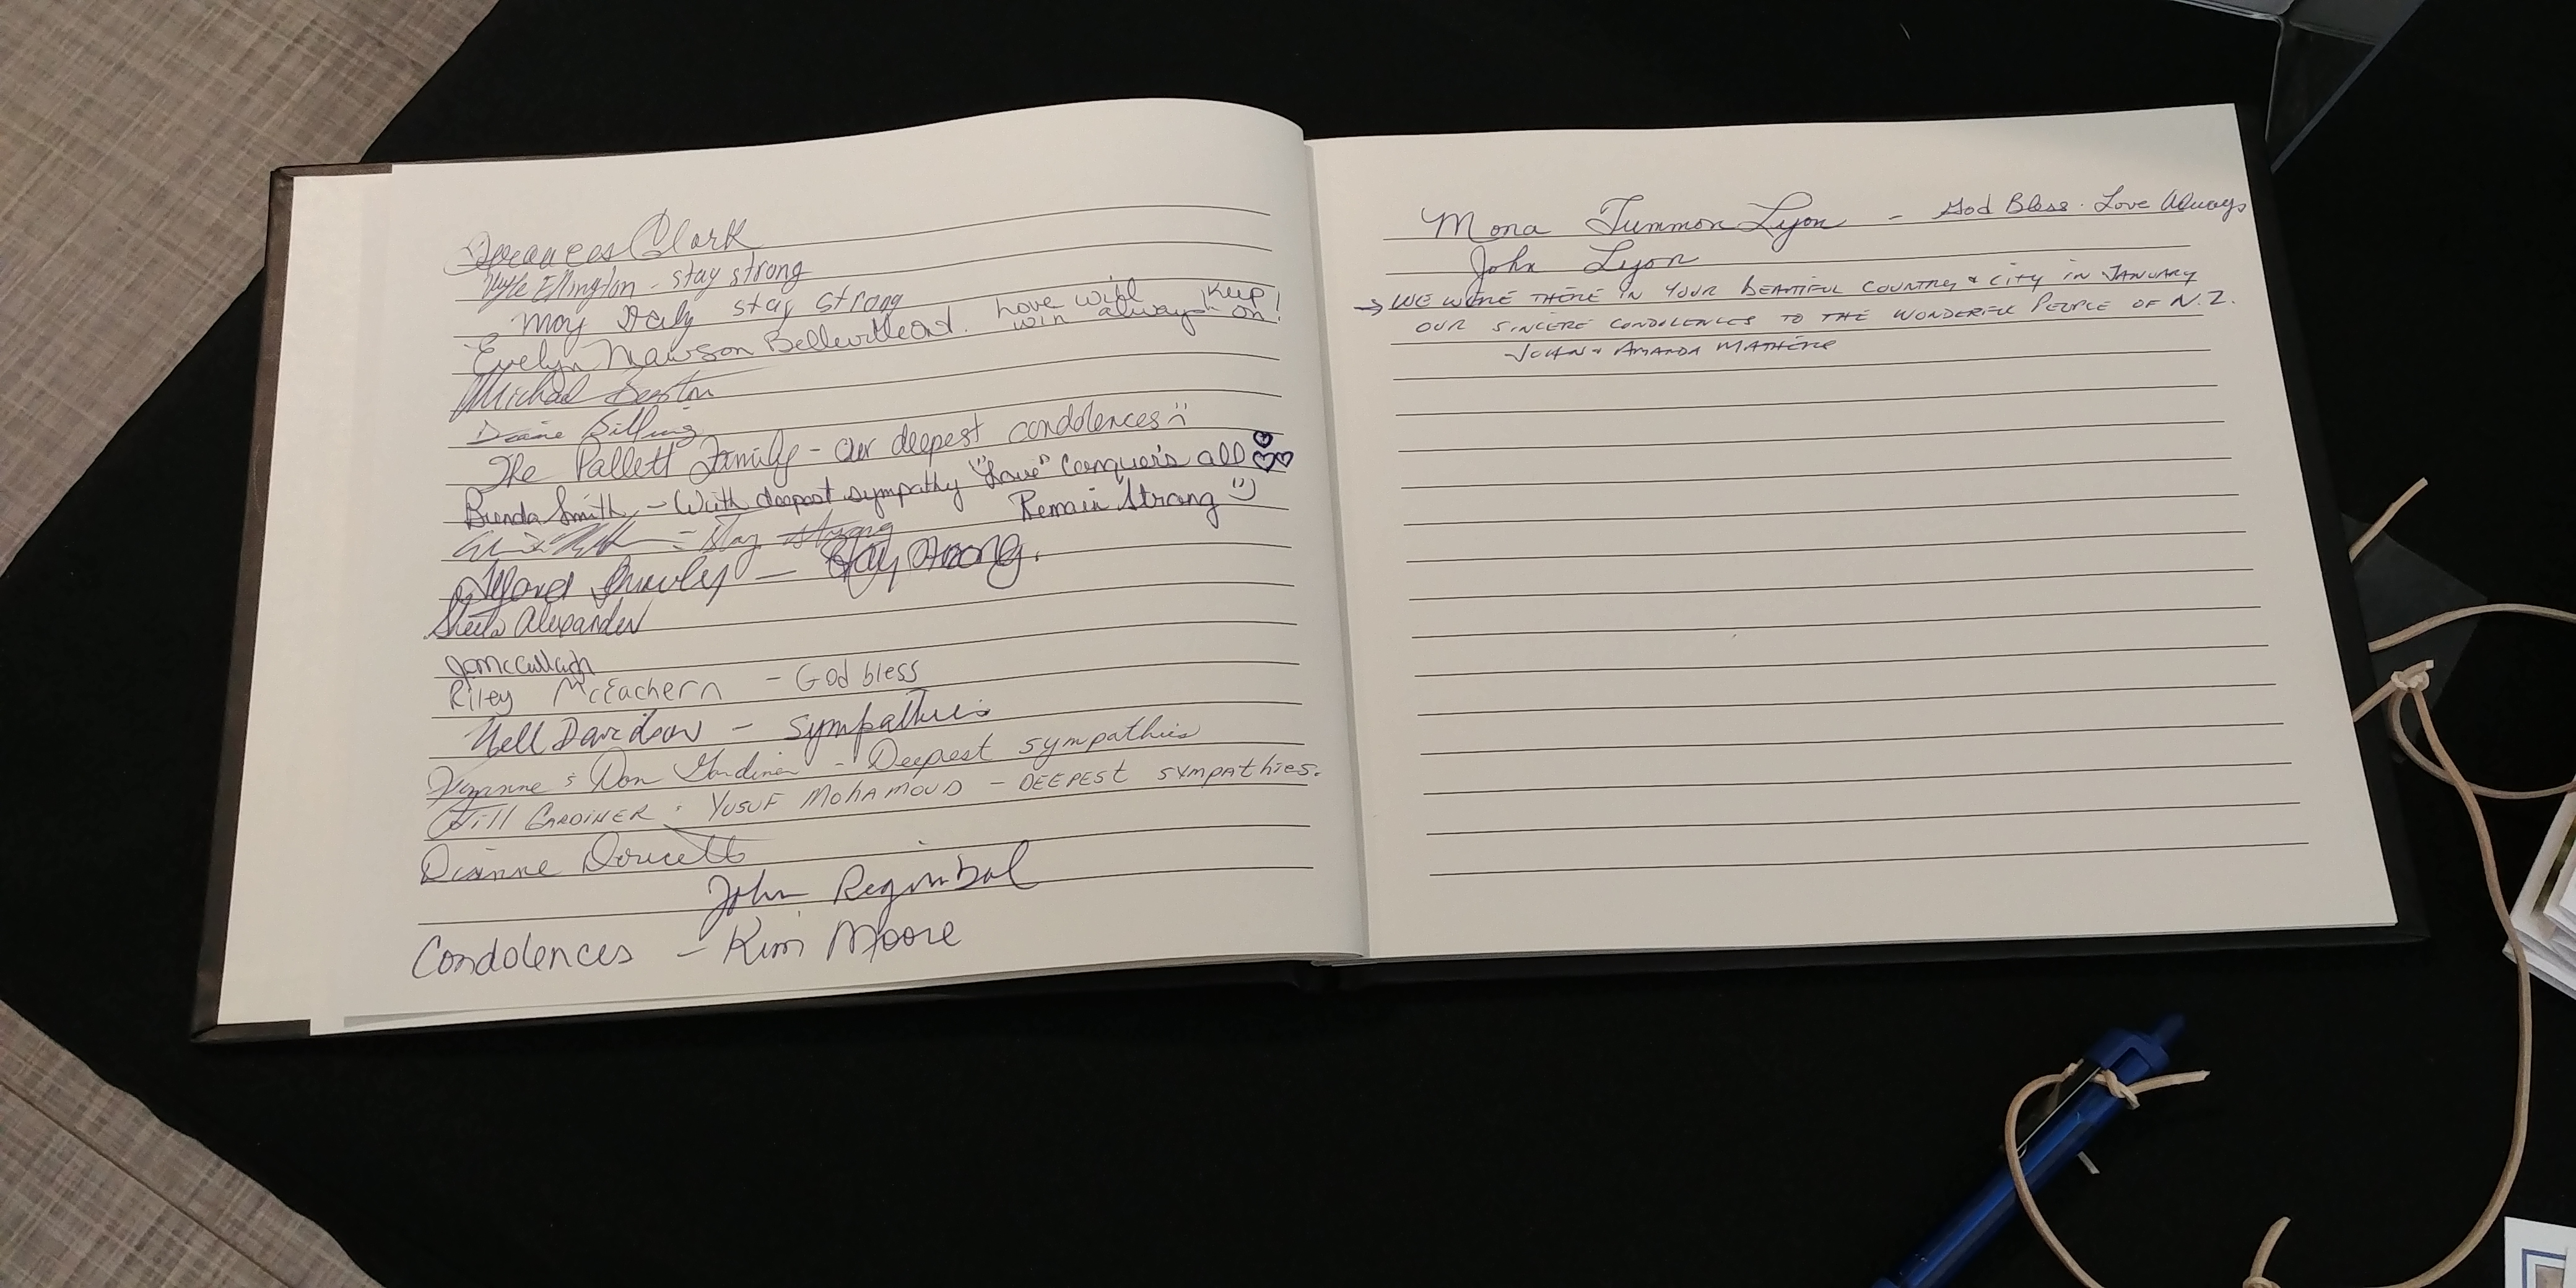 Frances Clark
Kyle Ellington - stay strong
May Daly stay strong
Evelyn Mawson Belleville Ont. Love will win always Keep on!
Michael Beeston
Diane Billing
The Pallett Family - our deepest condolences :(
Brenda Smith - With deepest sympathy "Love" Conquer's all
Remain Strong :)
- Stay strong
- Stay Strong.
Sheila Alexander
J McCullagh
Riley McEachern - God bless
Nell Davidson - Sympathies
& Don Gardiner - Deepest sympathies
Jill GARDINER & YUSUF MOHAMOUD - DEEPEST SYMPAthies.
Dianne Doucett
John Regimbal
Condolences - Kim Moore
Mona Tummon Lyon - God Bless. Love Always
John Lyon
→ WE WERE THERE IN YOUR BEAUTIFUL COUNTRY & CITY IN JANUARY
OUR SINCERE CONDOLENCES TO THE WONDERFUL PEOPLE OF N.Z.
JOHN & AMANDA